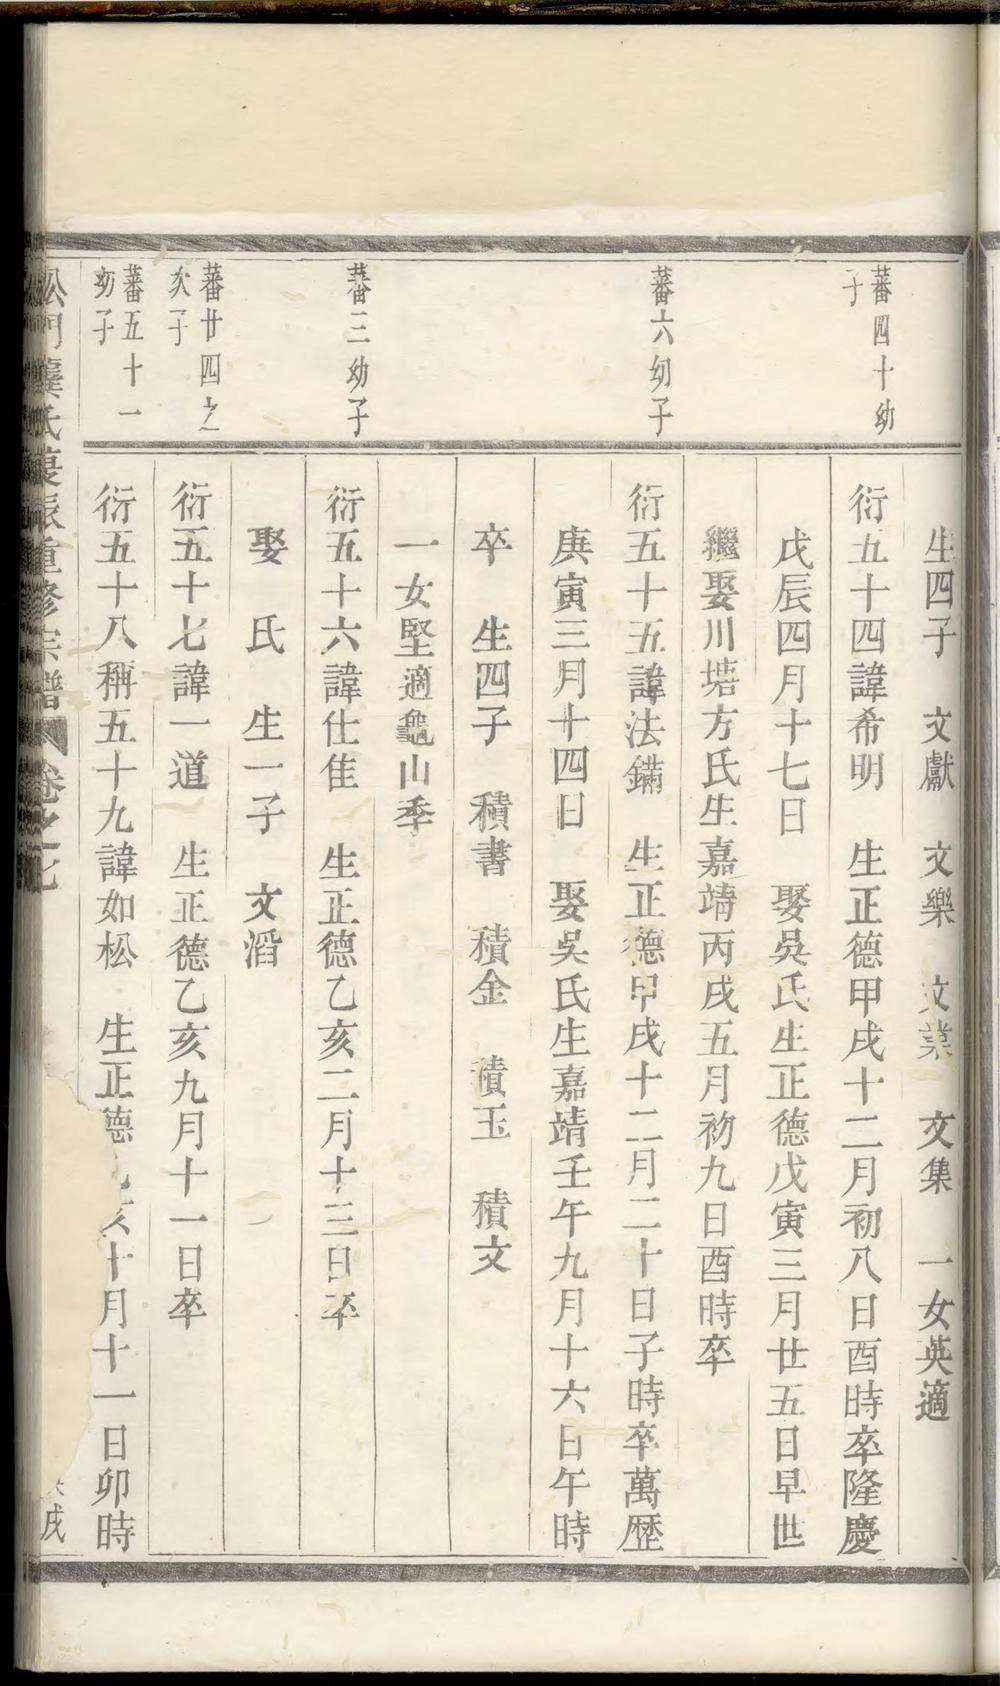 蕃四十幼
子
蕃六幼子
蕃三幼子
蕃廿四之
次子
蕃五十一
幼子
生四子　文獻　文樂　文業　文集　一女英適
衍五十四諱希明　生正德甲戌十二月初八日酉時卒隆慶
戊辰四月十七日　娶吳氏生正德戊寅三月廿五日早世
繼娶川塘方氏生嘉靖丙戌五月初九日酉時卒
衍五十五諱法鏋　生正德甲戌十二月二十日子時卒萬歷
庚寅三月十四日　娶吳氏生嘉靖壬午九月十六日午時
卒　生四子　積書　積金　積玉　積文
一女堅適龜山季
衍五十六諱仕隹　生正德乙亥二月十三日卒
娶　氏　生一子　文滔
衍五十七諱一道　生正德乙亥九月十一日卒
衍五十八稱五十九諱如松　生正德乙亥十月十一日卯時
松門龔氏重修宗譜　卷之七
戌